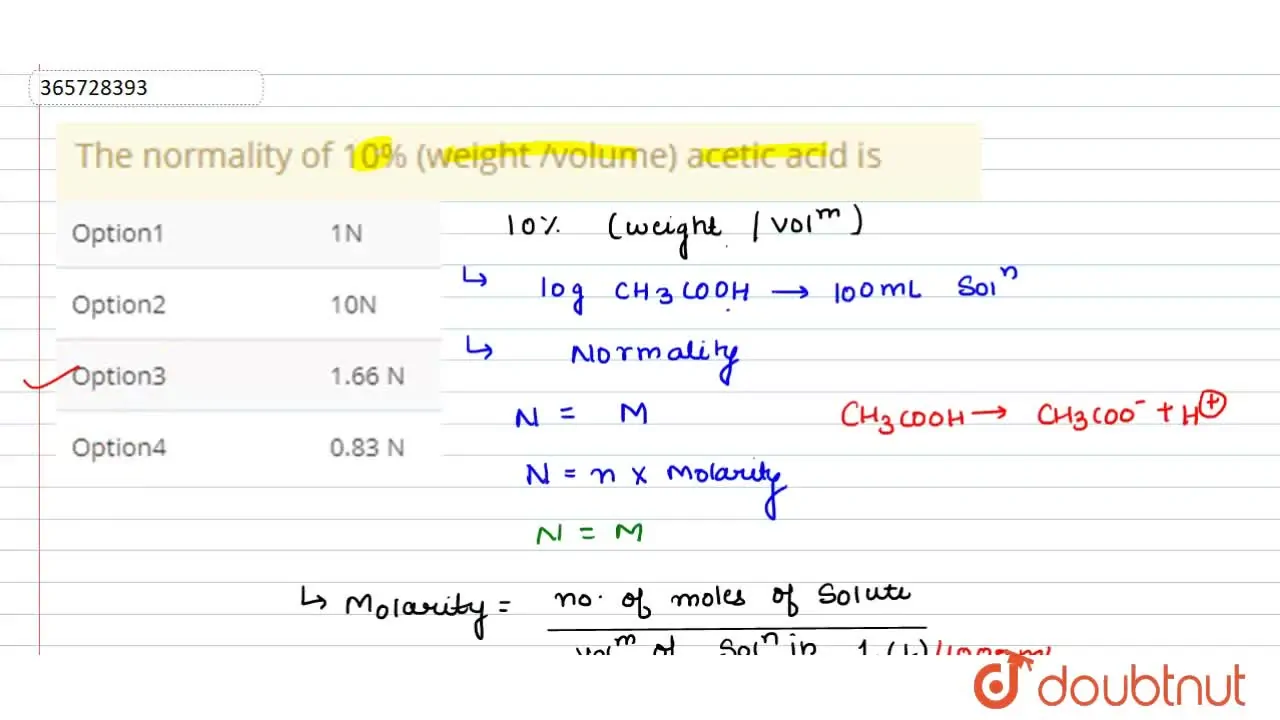 365728393
The normality of 10% (weight /volume) acetic acid is
Option1 1N
Option2 10N
Option3 1.66 N
Option4 0.83 N
10% (weight / volᵐ)
↳ 10g CH3COOH → 100mL Solⁿ
↳ Normality
N = M
CH3COOH → CH3COO⁻ + H⁺
N = n x Molarity
N = M
↳ Molarity = no. of moles of Solute
volᵐ of Solⁿ in 1 (L) / 1000 ml
doubtnut